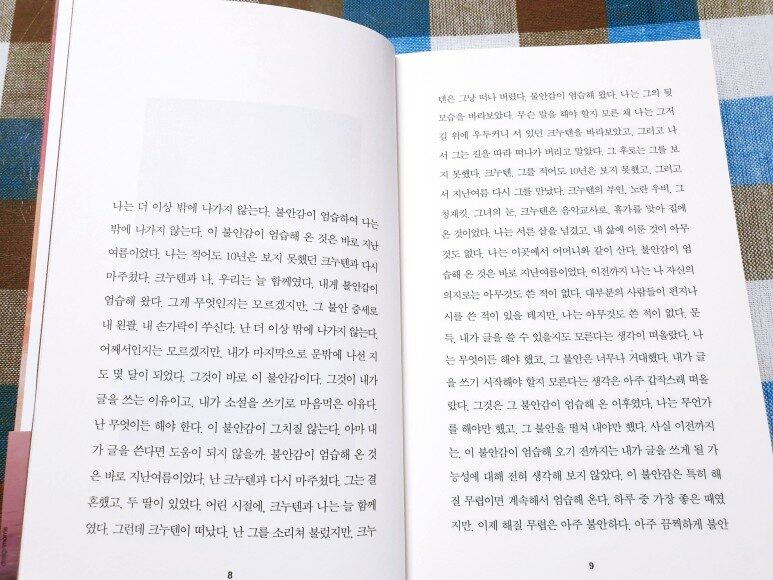 나는 더 이상 밖에 나가지 않는다. 불안감이 엄습하여 나는
밖에 나가지 않는다. 이 불안감이 엄습해 온 것은 바로 지난
여름이었다. 나는 적어도 10년은 보지 못했던 크누텐과 다시
마주쳤다. 크누텐과 나, 우리는 늘 함께였다. 내게 불안감이
엄습해 왔다. 그게 무엇인지는 모르겠지만, 그 불안 증세로
내 왼팔, 내 손가락이 쑤신다. 난 더 이상 밖에 나가지 않는다.
어째서인지는 모르겠지만, 내가 마지막으로 문밖에 나선 지
도 몇 달이 되었다. 그것이 바로 이 불안감이다. 그것이 내가
글을 쓰는 이유이고, 내가 소설을 쓰기로 마음먹은 이유다.
난 무엇이든 해야 한다. 이 불안감이 그치질 않는다. 아마 내
가 글을 쓴다면 도움이 되지 않을까. 불안감이 엄습해 온 것
은 바로 지난여름이었다. 난 크누텐과 다시 마주쳤다. 그는 결
혼했고, 두 딸이 있었다. 어린 시절에, 크누텐과 나는 늘 함께
였다. 그런데 크누텐이 떠났다. 난 그를 소리쳐 불렀지만, 크누
8
텐은 그냥 떠나 버렸다. 불안감이 엄습해 왔다. 나는 그의 뒷
모습을 바라보았다. 무슨 말을 해야 할지 모른 채 나는 그저
길 위에 우두커니 서 있던 크누텐을 바라보았고, 그러고 나
서 그는 길을 따라 떠나가 버리고 말았다. 그 후로는 그를 보
지 못했다. 크누텐, 그를 적어도 10년은 보지 못했고, 그러고
서 지난여름 다시 그를 만났다. 크누텐의 부인, 노란 우비, 그
청재킷, 그녀의 눈, 크누텐은 음악교사로, 휴가를 맞아 집에
온 것이었다. 나는 서른 살을 넘겼고, 내 삶에 이룬 것이 아무
것도 없다. 나는 이곳에서 어머니와 같이 산다. 불안감이 엄
습해 온 것은 바로 지난여름이었다. 이전까지 나는 나 자신의
의지로는 아무것도 쓴 적이 없다. 대부분의 사람들이 편지나
시를 쓴 적이 있을 테지만, 나는 아무것도 쓴 적이 없다. 문
득, 내가 글을 쓸 수 있을지도 모른다는 생각이 떠올랐다. 나
는 무엇이든 해야 했고, 그 불안은 너무나 거대했다. 내가 글
을 쓰기 시작해야 할지 모른다는 생각은 아주 갑작스레 떠올
랐다. 그것은 그 불안감이 엄습해 온 이후였다. 나는 무언가
를 해야만 했고, 그 불안을 떨쳐 내야만 했다. 사실 이전까지
는, 이 불안감이 엄습해 오기 전까지는 내가 글을 쓰게 될 가
능성에 대해 전혀 생각해 보지 않았다. 이 불안감은 특히 해
질 무렵이면 계속해서 엄습해 온다. 하루 중 가장 좋은 때였
지만, 이제 해질 무렵은 아주 불안하다. 아주 끔찍하게 불안
9